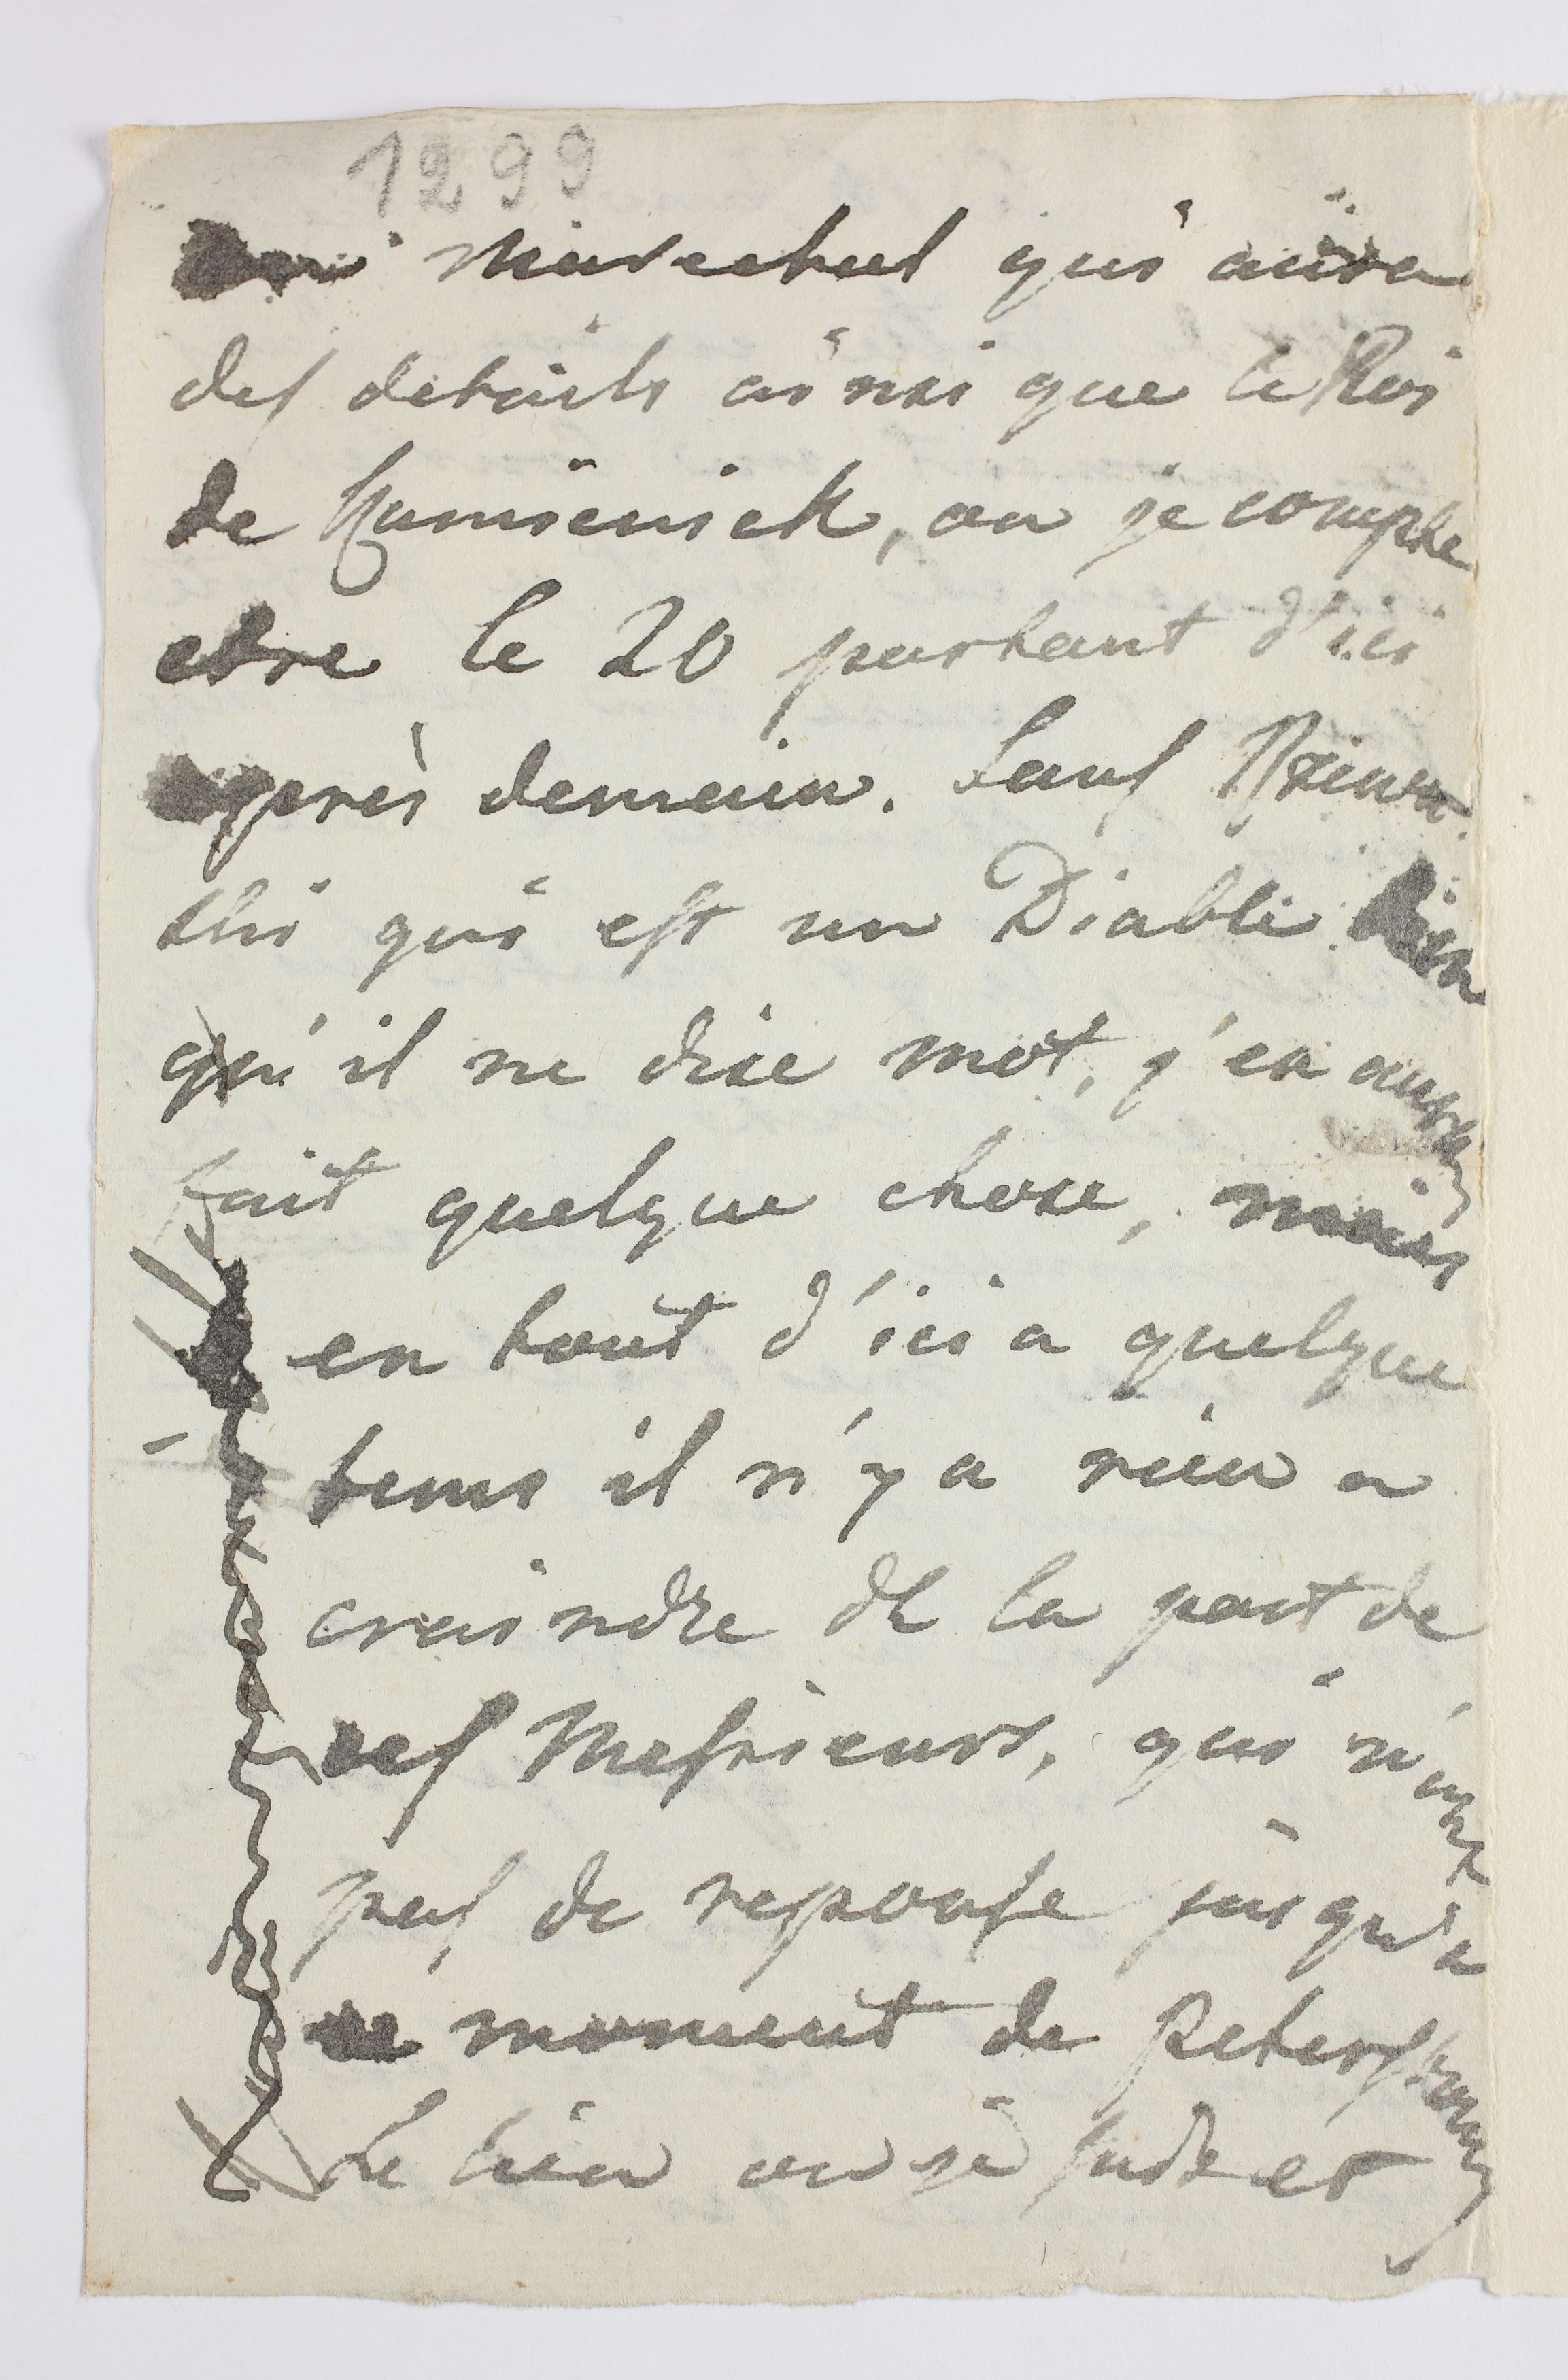 1299
Marechal qui aura
des details ainsi que le Roi
de Kamieniek, ou je compte
etre le 20 partant d'ici
après demain. Sauf
ski qui est un Diable bien
qu'il ne dise mot, j'en
fait quelque chose, mais
en tout d'ici a quelque
tems il n'y a rien a
craindre de la part de
ces Messieurs, qui n'ont
pas de reponse jusqu'a
ce moment de Petersbourg
Le lieu ou je suis et